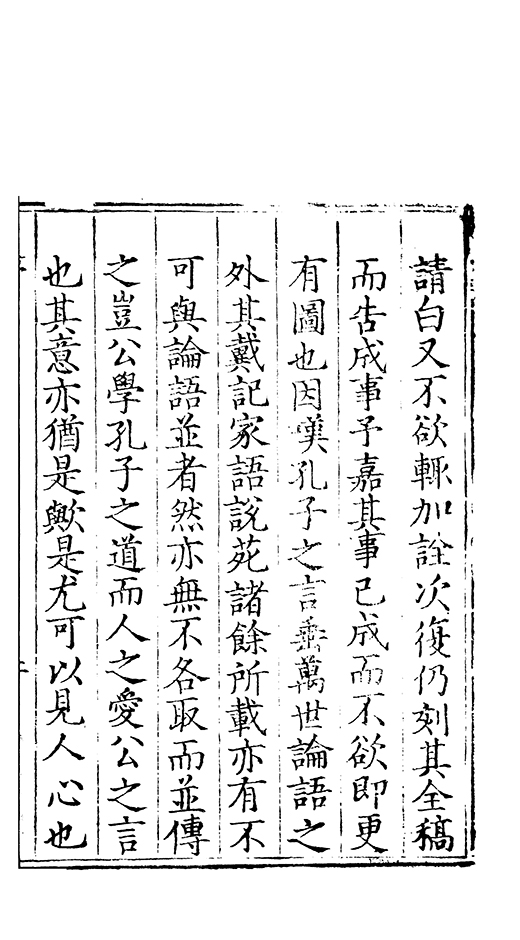 請白又不欲輙加詮次復仍刻其全稿
而告成事予嘉其事已成而不欲即更
有圖也因嘆孔子之言垂萬世論語之
外其戴記家語說苑諸餘所載亦有不
可與論語並者然亦無不各取而並傳
之豈公學孔子之道而人之愛公之言
也其意亦猶是歟是尤可以見人心也